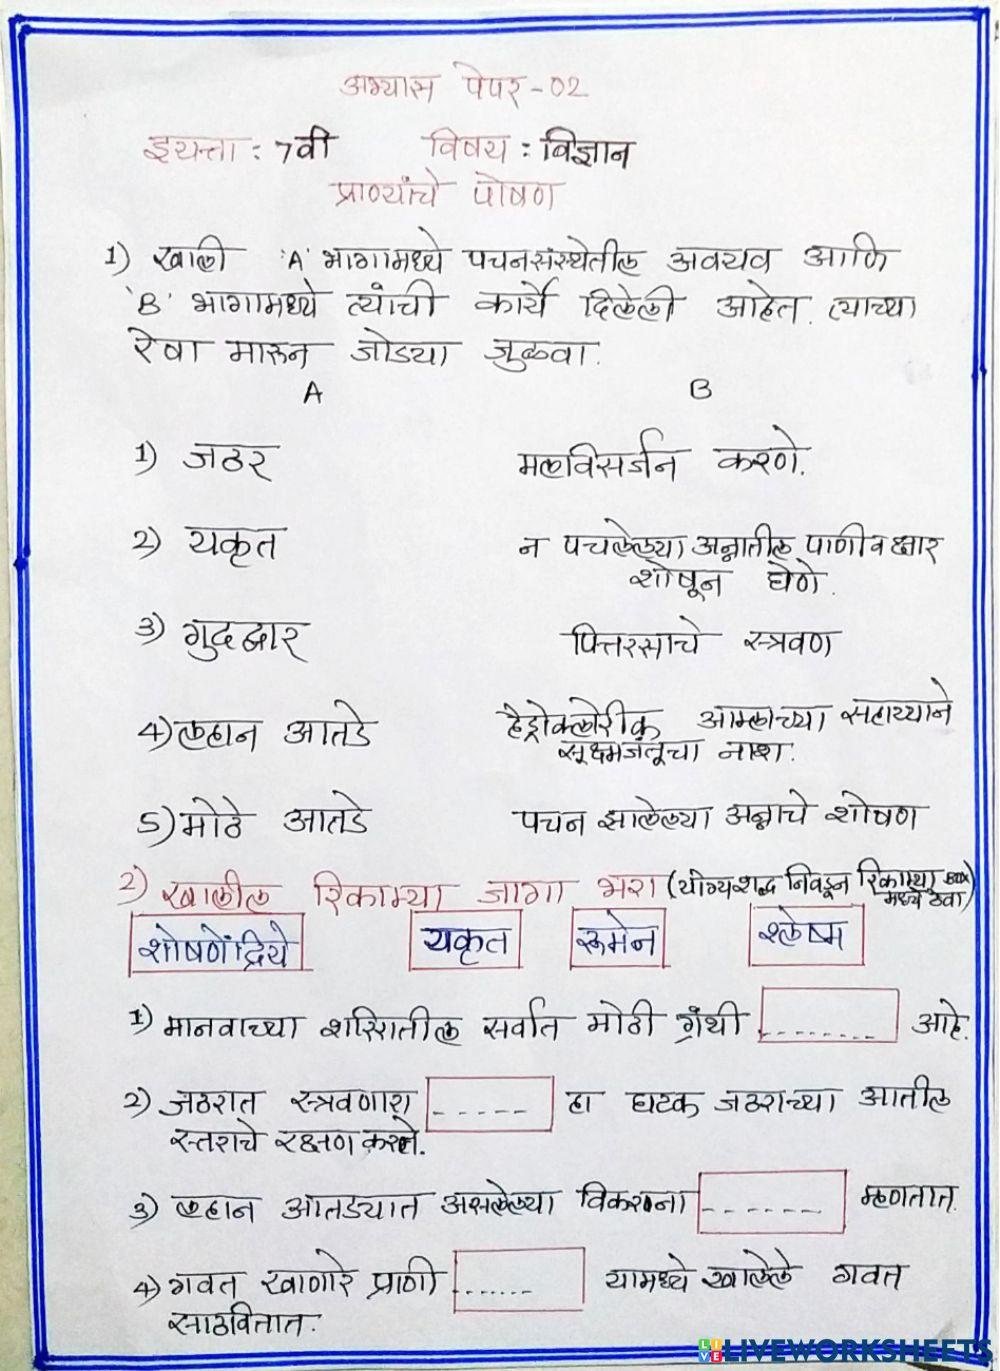 अभ्यास पेपर - 02
इयत्ता : 7वी विषय : विज्ञान
प्राण्यांचे पोषण
1) खाली 'A' भागामध्ये पचनसंस्थेतील अवयव आणि
'B' भागामध्ये त्यांची कार्ये दिलेली आहेत. त्याच्या
रेषा मारून जोड्या जुळवा.
A B
1) जठर मलविसर्जन करणे.
2) यकृत न पचलेल्या अन्नातील पाणी व क्षार
शोषून घेणे.
3) गुदद्वार पित्तरसाचे स्त्रवण
4) लहान आतडे हैड्रोक्लोरीक आम्लाच्या सहाय्याने
सूक्ष्मजंतूचा नाश.
5) मोठे आतडे पचन झालेल्या अन्नाचे शोषण
2) खालील रिकाम्या जागा भरा (योग्य शब्द निवडून रिकाम्या Box
मध्ये ठेवा)
शोषणेंद्रिये यकृत रूमेन श्लेष्म
1) मानवाच्या शरिरातील सर्वात मोठी ग्रंथी -------- आहे.
2) जठरात स्त्रवणारा ----- हा घटक जठराच्या आतील
स्तराचे रक्षण करते.
3) लहान आतड्यात असलेल्या विकरांना ------ म्हणतात.
4) गवत खाणारे प्राणी ------ यामध्ये खालेले गवत
साठवितात.
LIVEWORKSHEETS